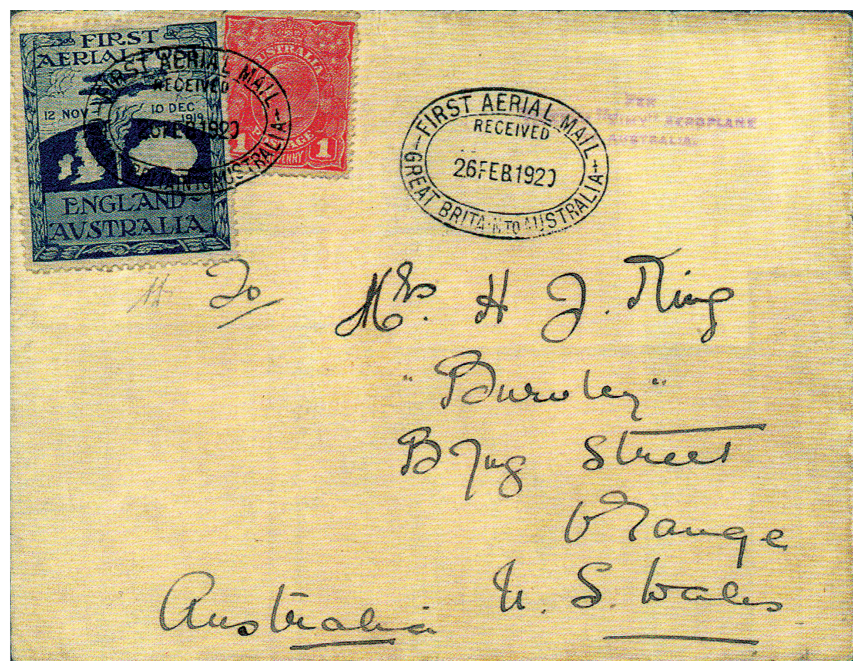 FIRST
AERIAL POST
12 NOV 10 DEC
1919
ENGLAND
AUSTRALIA
AUSTRALIA
1 PENNY 1
FIRST AERIAL MAIL
RECEIVED
26 FEB 1920
GREAT BRITAIN TO AUSTRALIA
FIRST AERIAL MAIL
RECEIVED
26 FEB 1920
GREAT BRITAIN TO AUSTRALIA
PER
AEROPLANE
AUSTRALIA.
To
Mrs. H J. King
Byng Street
Orange
N. S. Wales
Australia